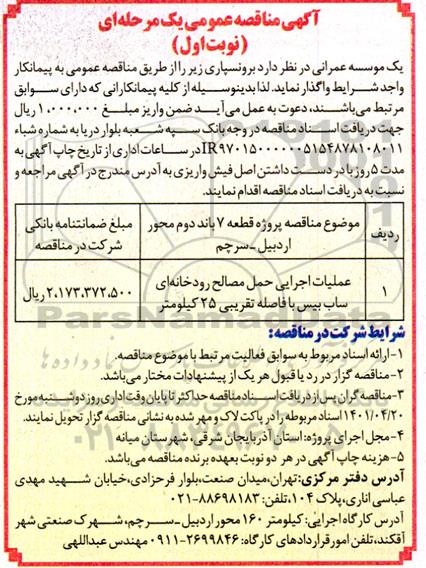 آگهی مناقصه عمومی یک مرحله‌ای
(نوبت اول)
یک موسسه عمرانی در نظر دارد برونسپاری زیر را از طریق مناقصه عمومی به پیمانکار
واجد شرایط واگذار نماید. لذا بدینوسیله از کلیه پیمانکارانی که دارای سوابق
مرتبط می‌باشند، دعوت به عمل می‌آید ضمن واریز مبلغ ۱,۰۰۰,۰۰۰ ریال
جهت دریافت اسناد مناقصه در وجه بانک سپه شعبه بلوار دریا به شماره شباء
IR۹۷۰۱۵۰۰۰۰۰۰۵۱۵۴۸۷۸۱۰۸۰۱۱ در ساعات اداری از تاریخ چاپ آگهی به
مدت ۵ روز با در دست داشتن اصل فیش واریزی به آدرس مندرج در آگهی مراجعه و
نسبت به دریافت اسناد مناقصه اقدام نمایند.
ردیف
موضوع مناقصه پروژه قطعه ۷ باند دوم محور اردبیل ـ سرچم
مبلغ ضمانتنامه بانکی شرکت در مناقصه
۱
عملیات اجرایی حمل مصالح رودخانه‌ای ساب بیس با فاصله تقریبی ۲۵ کیلومتر
۲,۱۷۳,۳۷۲,۵۰۰ ریال
شرایط شرکت در مناقصه:
۱-ارائه اسناد مربوط به سوابق فعالیت مرتبط با موضوع مناقصه.
۲-مناقصه گزار در رد یا قبول هر یک از پیشنهادات مختار می‌باشد.
۳-مناقصه گران پس از دریافت اسناد مناقصه حداکثر تا پایان وقت اداری روز دوشنبه مورخ
۱۴۰۱/۰۴/۲۰ اسناد مربوطه را در پاکت لاک و مهر شده به نشانی مناقصه گزار تحویل نمایند.
۴-محل اجرای پروژه: استان آذربایجان شرقی، شهرستان میانه
۵-هزینه چاپ آگهی در هر دو نوبت بعهده برنده مناقصه می‌باشد.
آدرس دفتر مرکزی: تهران، میدان صنعت، بلوار فرحزادی، خیابان شهید مهدی
عباسی اناری، پلاک ۱۰۴، تلفن: ۸۸۶۹۸۱۸۳-۰۲۱
آدرس کارگاه اجرایی: کیلومتر ۱۶۰ محور اردبیل ـ سرچم، شهرک صنعتی شهر
آقکند، تلفن امور قراردادهای کارگاه: ۲۶۹۹۸۴۶-۰۹۱۱ مهندس عبداللهی
ParsNamadData